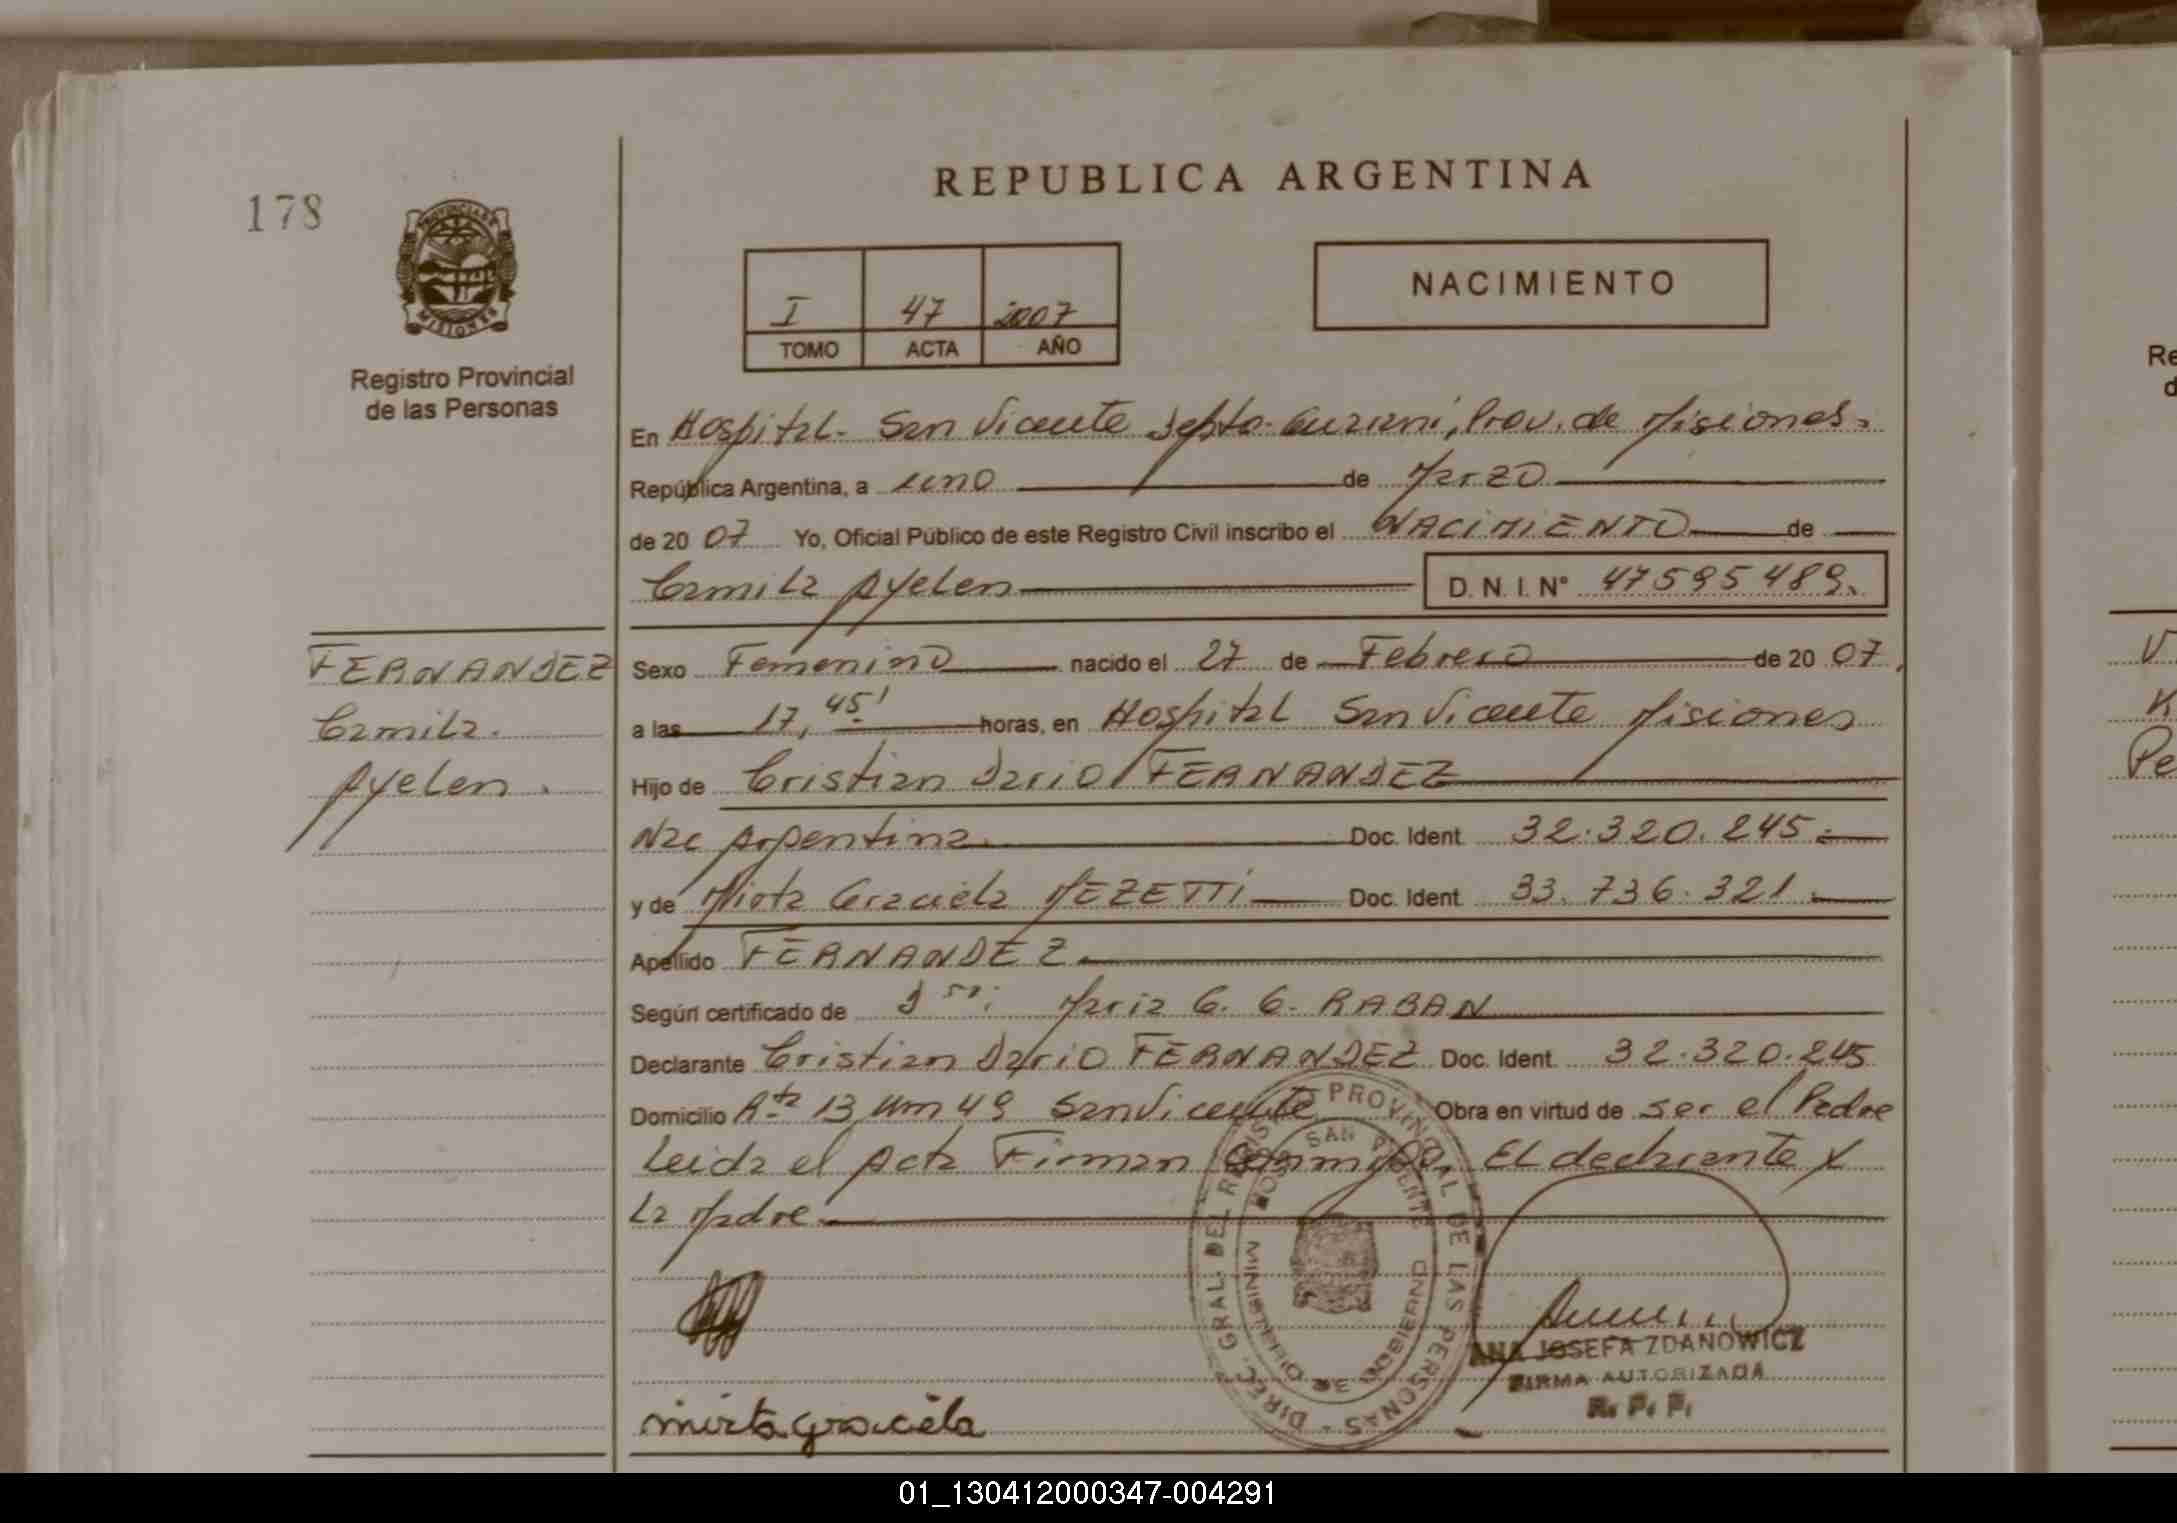 REPUBLICA ARGENTINA
178
PROVINCIA DE
MISIONES
Registro Provincial
de las Personas
I 47 2007
TOMO ACTA AÑO
NACIMIENTO
En Hospital. San Vicente Depto. Guarani, Prov. de Misiones.
República Argentina, a uno de Marzo
de 2007 Yo, Oficial Público de este Registro Civil inscribo el NACIMIENTO de
Camila Ayelen D. N. I. N° 47595489.
FERNANDEZ
Camila.
Ayelen.
Sexo Femenino nacido el 27 de Febrero de 2007,
a las 17,45' horas, en Hospital San Vicente Misiones
Hijo de Cristian Dario FERNANDEZ
Nac Argentina. Doc. Ident. 32.320.245.
y de Mirta Graciela MEZETTI Doc. Ident. 33.736.321.
Apellido FERNANDEZ.
Según certificado de Dra: Maria G. G. RABAN
Declarante Cristian Dario FERNANDEZ Doc. Ident. 32.320.245
Domicilio Rta 13 Km 49 San Vicente Obra en virtud de ser el Padre
Leida el Acta Firman Conmigo, El declarante y
La Madre
DIREC. GRAL. DEL REGIST. PROVINCIAL DE LAS PERSONAS -
HOSP. SAN VICENTE
MINISTERIO DE GOBIERNO
mirta graciela
ANA JOSEFA ZDANOWICZ
FIRMA AUTORIZADA
R. P. P.
Re
d
V
K
Pe
01_130412000347-004291